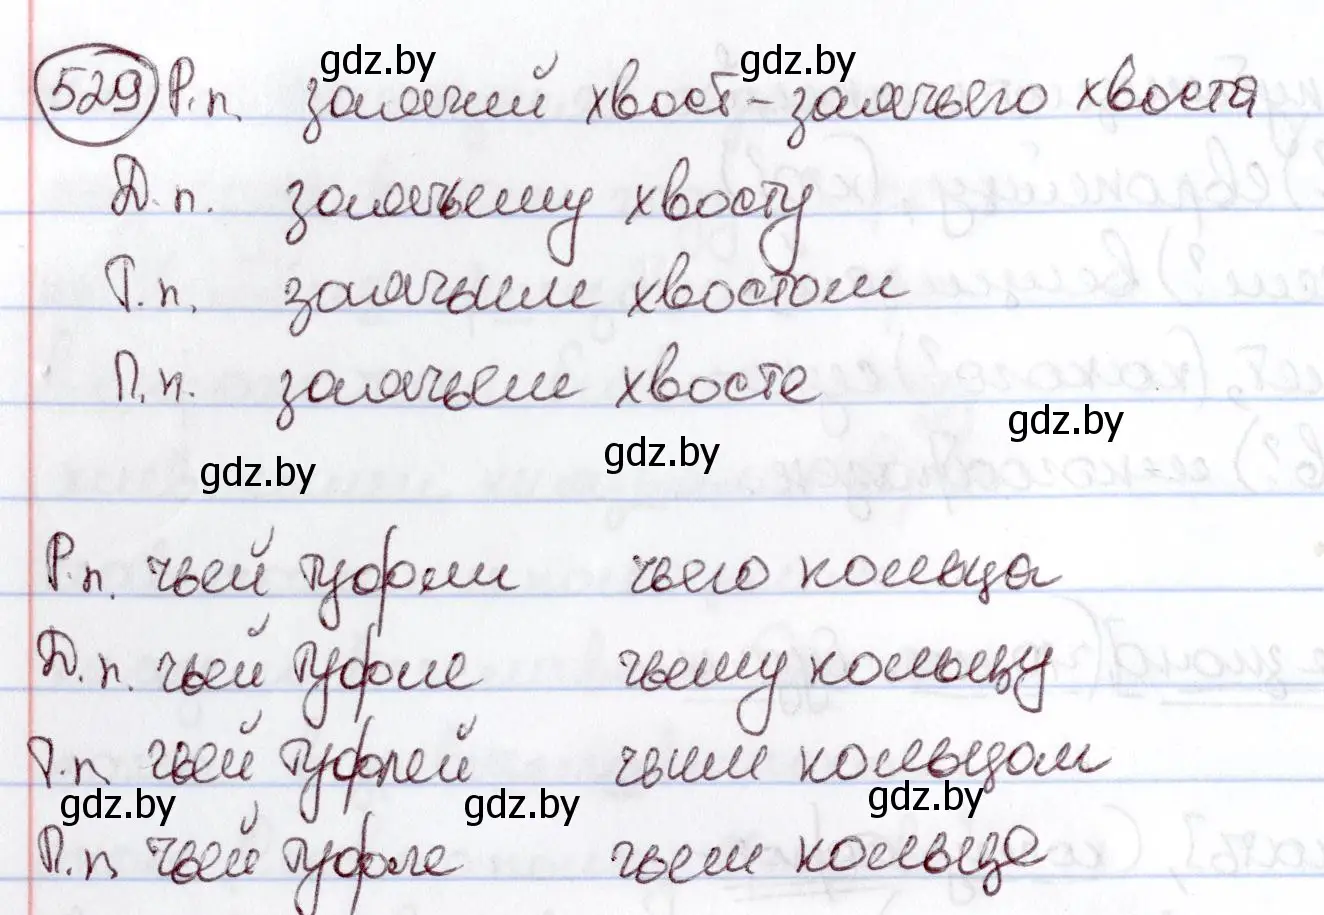 gdz.by gdz.by
529 Р.п. заячий хвост - заячьего хвоста
Д.п. заячьему хвосту
Т.п. заячьим хвостом
П.п. заячьем хвосте
gdz.by gdz.by gdz.by
Р.п. чьей туфли чьего кольца
Д.п. чьей туфле чьему кольцу
Т.п. чьей туфлей чьим кольцом
gdz.by gdz.by gdz.by
П.п. чьей туфле чьем кольце